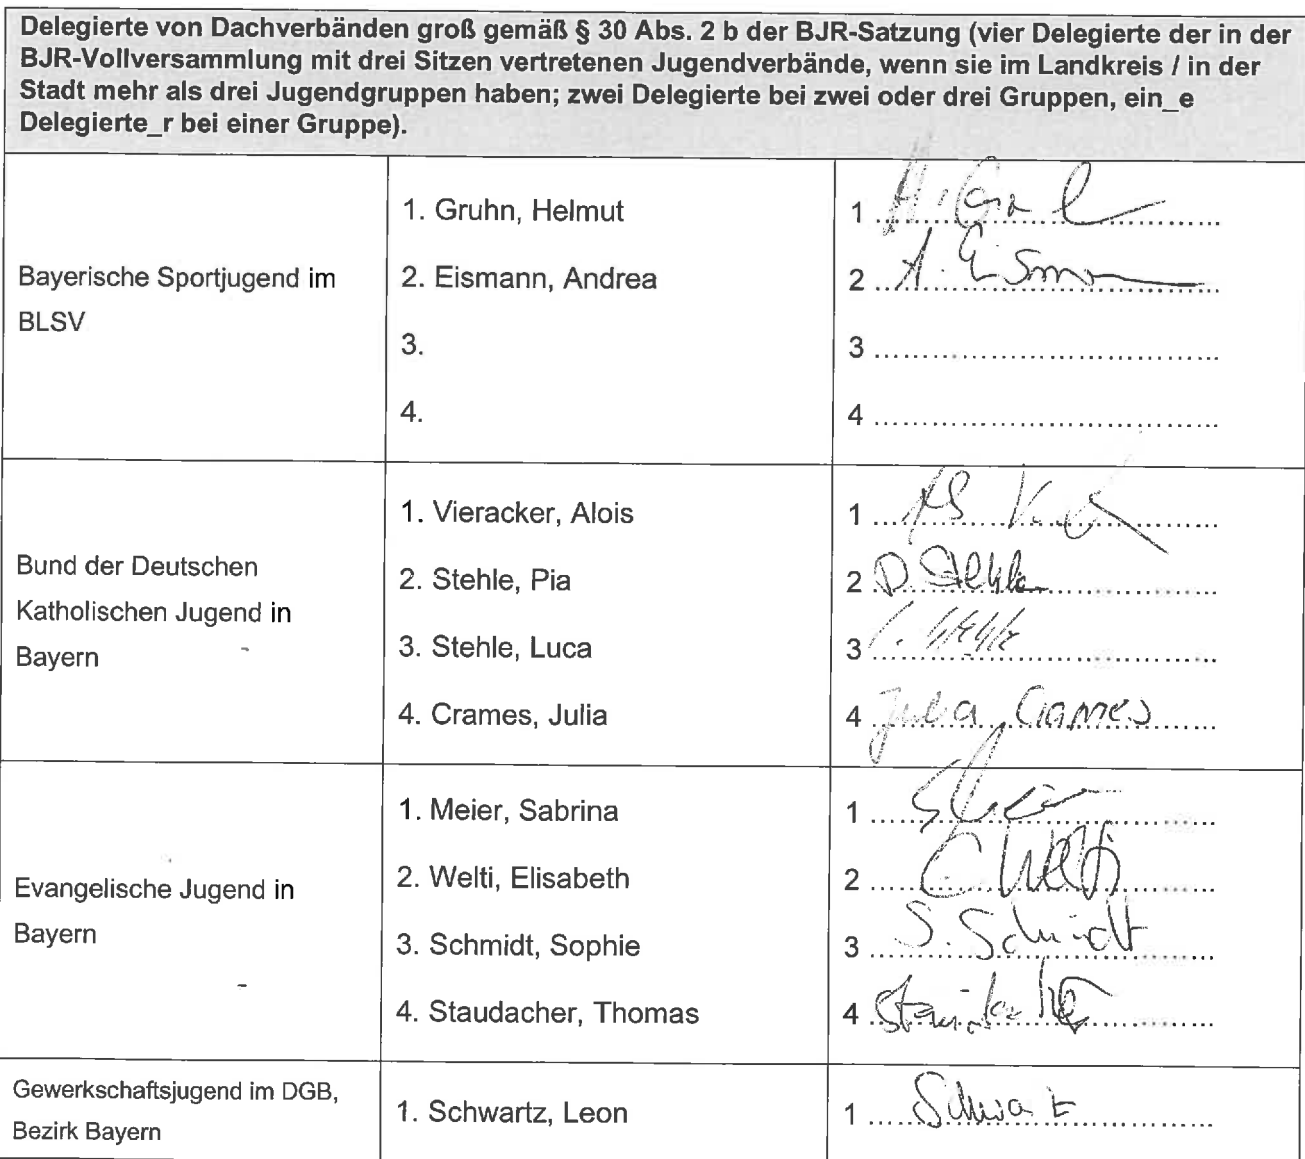 Delegierte von Dachverbänden groß gemäß § 30 Abs. 2 b der BJR-Satzung (vier Delegierte der in der
BJR-Vollversammlung mit drei Sitzen vertretenen Jugendverbände, wenn sie im Landkreis / in der
Stadt mehr als drei Jugendgruppen haben; zwei Delegierte bei zwei oder drei Gruppen, ein_e
Delegierte_r bei einer Gruppe).
Bayerische Sportjugend im
BLSV
1. Gruhn, Helmut
2. Eismann, Andrea
3.
4.
1
2 A.
3
4
Bund der Deutschen
Katholischen Jugend in
Bayern
1. Vieracker, Alois
2. Stehle, Pia
3. Stehle, Luca
4. Crames, Julia
1
2 P. Stehle
3
4 Julia Crames
Evangelische Jugend in
Bayern
1. Meier, Sabrina
2. Welti, Elisabeth
3. Schmidt, Sophie
4. Staudacher, Thomas
1
2 E Welti
3 S. Schmidt
4
Gewerkschaftsjugend im DGB,
Bezirk Bayern
1. Schwartz, Leon
1